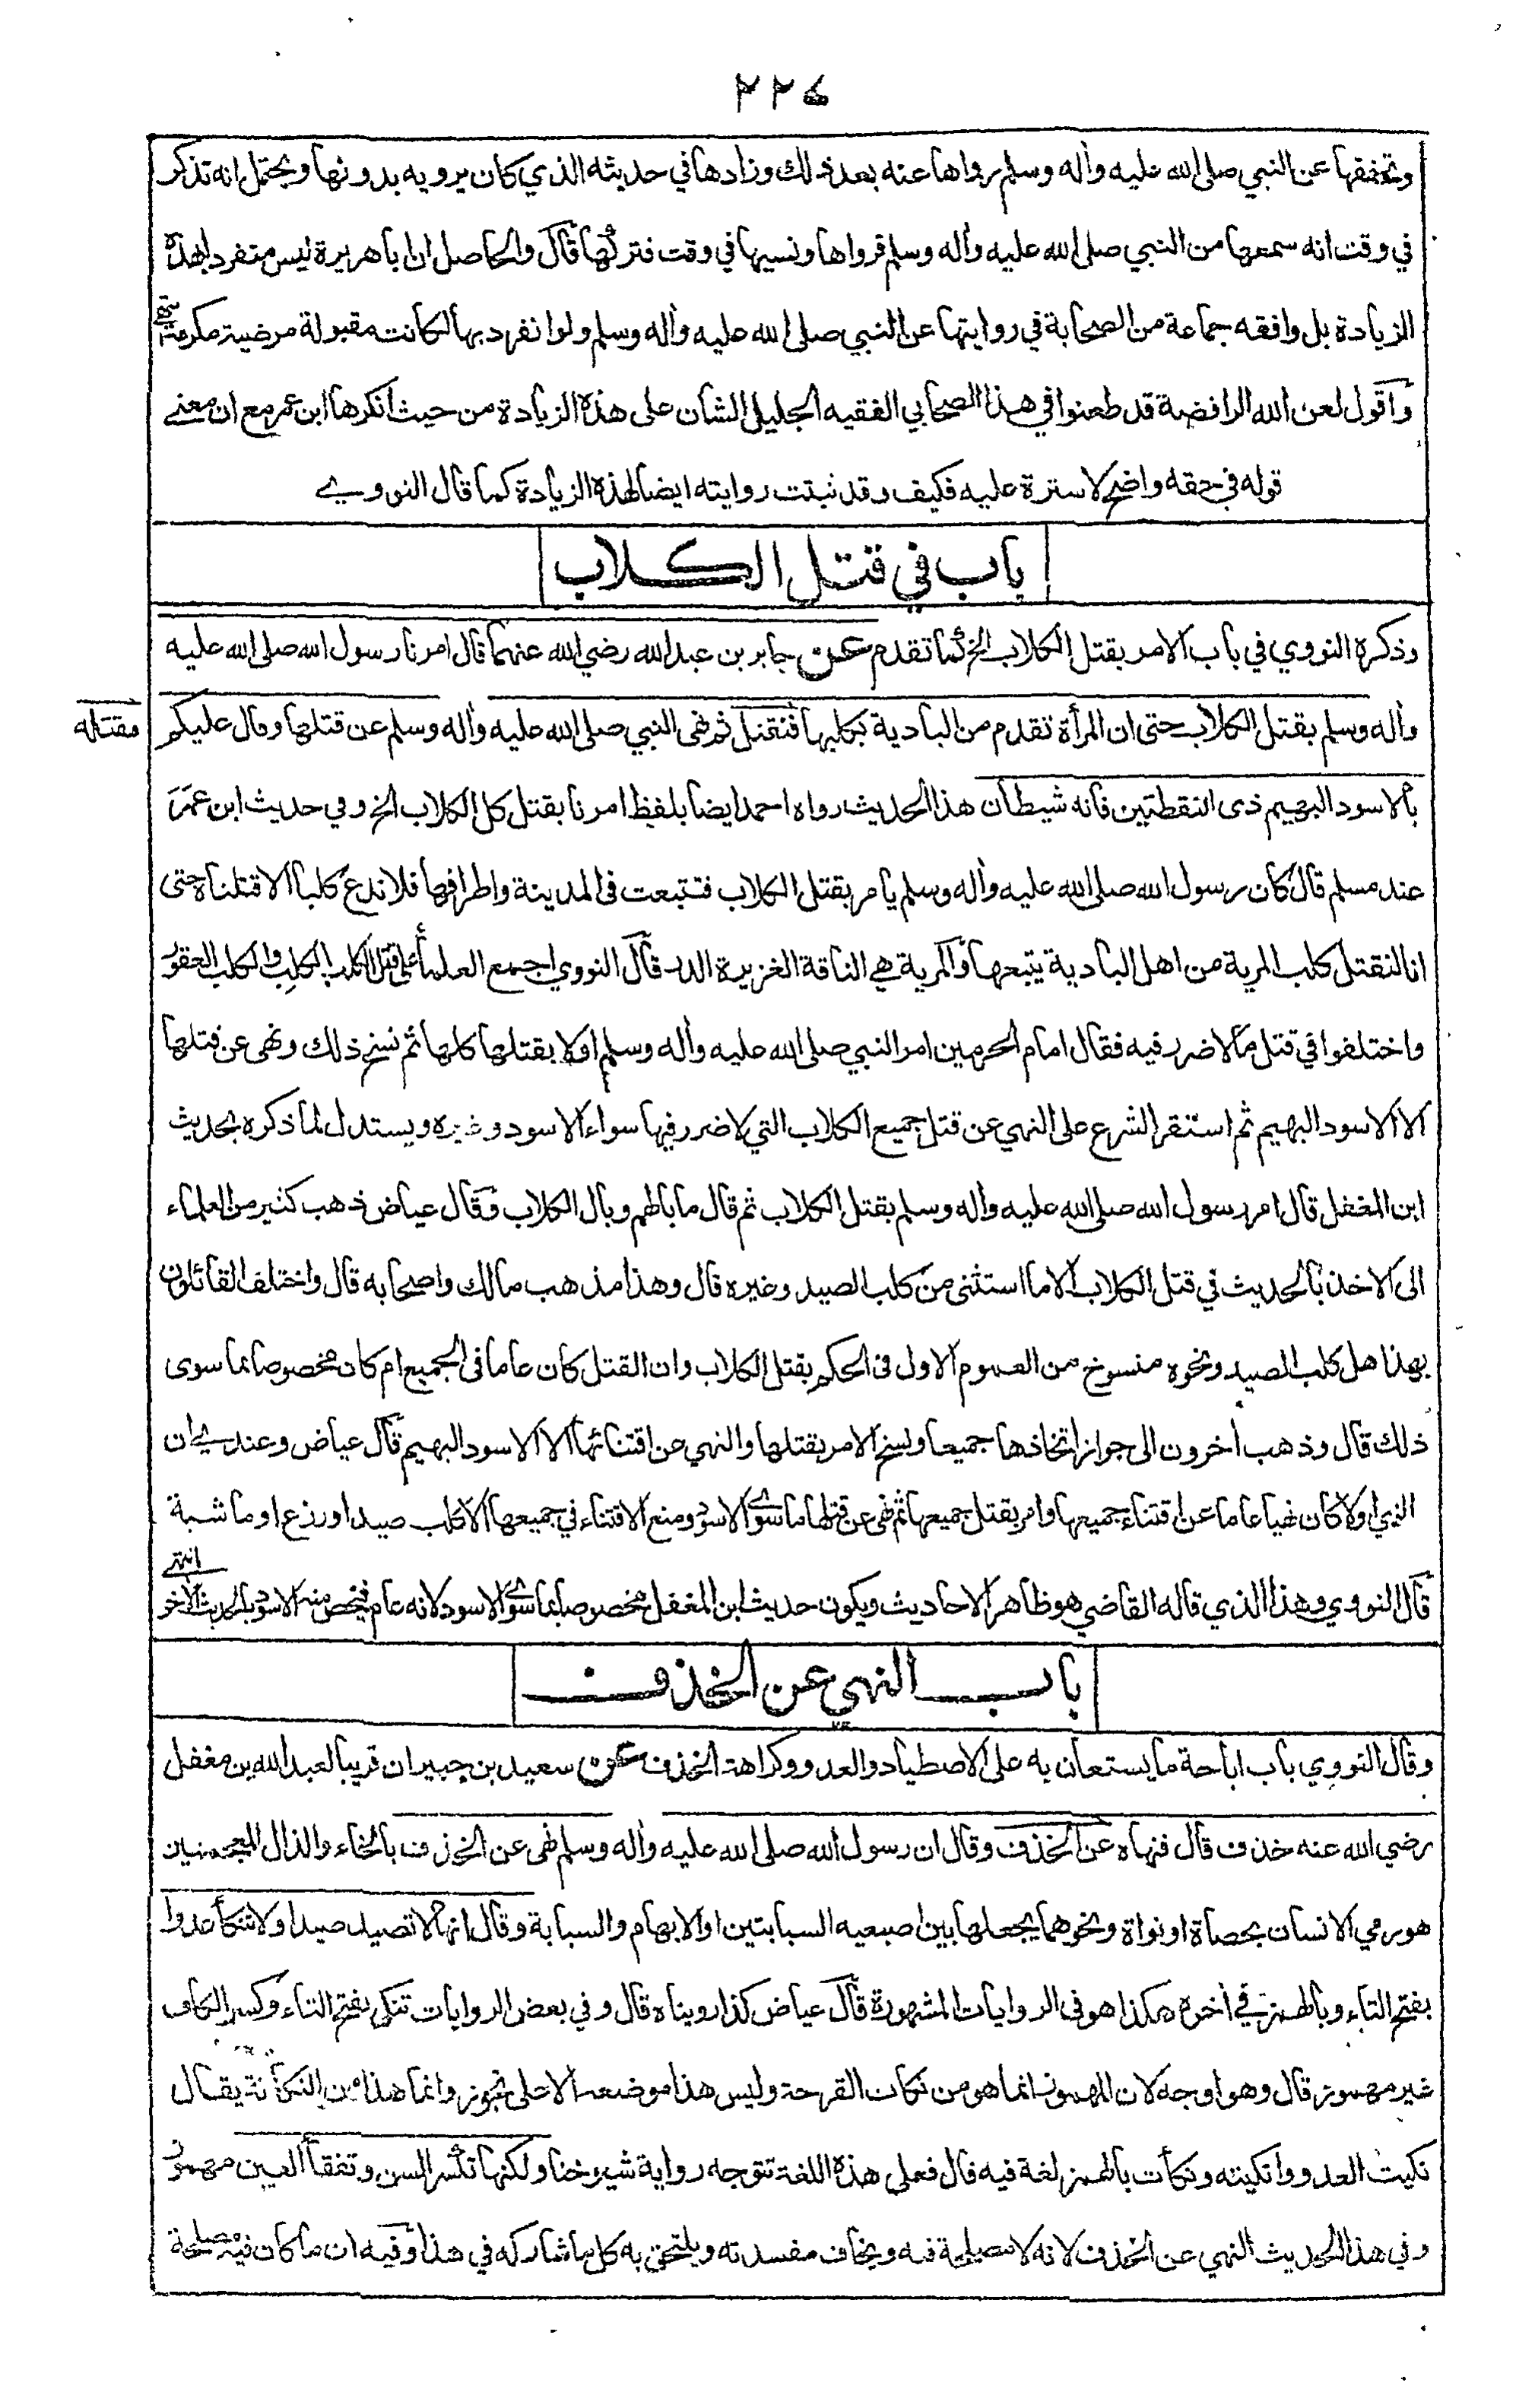 ٢٢٤
وتحققها عن النبي صلى الله عليه وأله وسلم رواها عنه بعد ذلك وزادها في حديثه الذي كان يرويه بدونها ويحتمل انه تذكر
في وقت انه سمعها من النبي صلى الله عليه وأله وسلم فرواها ونسيها في وقت فتركها قال والحاصل ان اباهريرة ليس متفرد ابهذه
الزيادة بل وافقه جماعة من الصحابة في روايتها عن النبي صلى الله عليه وأله وسلم ولو انفرد بها لكانت مقبولة مرضية مكرمة انتهى
واقول لعن الله الرافضة قد طعنوا في هذا الصحابي الفقيه الجليل الشان على هذه الزيادة من حيث انكرها ابن عمر مع ان معنى
قوله في حقه واضح لا سترة عليه فكيف وقد ثبتت روايته ايضا لهذه الزيادة كما قال النووي
باب في قتل الكلاب
وذكره النووي في باب الامر بقتل الكلاب الخ كما تقدم عن جابر بن عبد الله رضي الله عنهما قال امرنا رسول الله صلى الله عليه
وأله وسلم بقتل الكلاب حتى ان المرأة تقدم من البادية بكلبها فنقتل ثم نهى النبي صلى الله عليه وأله وسلم عن قتلها وقال عليكم
فنقتله
بالاسود البهيم ذى النقطتين فانه شيطان هذا الحديث رواه احمد ايضا بلفظ امرنا بقتل كل الكلاب الخ وفي حديث ابن عمر
عند مسلم قال كان رسول الله صلى الله عليه وأله وسلم يامر بقتل الكلاب فتتبعت في المدينة واطرافها فلا ندع كلبا الا قتلناه حتى
انا لنقتل كلب المرية من اهل البادية يتبعها والمرية هي الناقة الغزيرة الدر قال النووي اجمع العلماء على قتل الكلب الكلب والكلب العقور
واختلفوا في قتل ما لا ضرر فيه فقال امام الحرمين امر النبي صلى الله عليه وأله وسلم اولا بقتلها كلها ثم نسخ ذلك ونهى عن قتلها
الا الاسود البهيم ثم استقر الشرع على النهي عن قتل جميع الكلاب التي لا ضرر فيها سواء الاسود وغيره ويستدل لما ذكره بحديث
ابن المغفل قال امر رسول الله صلى الله عليه وأله وسلم بقتل الكلاب ثم قال ما بالهم وبال الكلاب وقال عياض ذهب كثير من العلماء
الى الاخذ بالحديث في قتل الكلاب الا ما استثنى من كلب الصيد وغيره قال وهذا مذهب مالك واصحابه قال واختلف القائلون
بهذا هل كلب الصيد ونحوه منسوخ من العموم الاول في الحكم بقتل الكلاب وان القتل كان عاما في الجميع ام كان مخصوصا بما سوى
ذلك قال وذهب أخرون الى جواز اتخاذها جميعا ونسخ الامر بقتلها والنهي عن اقتنائها الا الاسود البهيم قال عياض وعندي ان
النهي اولا كان نهيا عاما عن اقتناء جميعها وامر بقتل جميعها ثم نهى عن قتلها ما سوى الاسود ومنع الاقتناء في جميعها الا كلب صيد او زرع او ماشية
قال النووي وهذا الذي قاله القاضي هو ظاهر الاحاديث ويكون حديث ابن المغفل مخصوصا بما سوى الاسود لانه عام فيخص منه الاسود بالحديث الأخر انتهى
باب النهي عن الخذف
وقال النووي باب اباحة ما يستعان به على الاصطياد والعدو وكراهة الخذف عن سعيد بن جبير ان قريبا لعبد الله بن مغفل
رضي الله عنه خذف قال فنهاه عن الخذف وقال ان رسول الله صلى الله عليه وأله وسلم نهى عن الخذف بالخاء والذال المعجمتين
هو رمي الانسان بحصاة او نواة ونحوهما يجعلها بين اصبعيه السبابتين او الابهام والسبابة وقال انها لا تصيد صيدا ولا تنكأ عدوا
بفتح التاء وبالهمز في أخره هكذا هو في الروايات المشهورة قال عياض كذا رويناه قال وفي بعض الروايات تنكي بفتح التاء وكسر الكاف
غير مهموز قال وهو اوجه لان المهموز انما هو من نكأت القرحة وليس هذا موضعه الا على تجوز وانما هذا من النكاية يقال
نكيت العدو وانكيته ونكأت بالهمز لغة فيه قال فعلى هذه اللغة تتوجه رواية شيوخنا ولكنها تكسر السن وتفقأ العين مهموز
وفي هذا الحديث النهي عن الخذف لانه لا مصلحة فيه ويخاف مفسدته ويلتحق به كل ما شاركه في هذا وفيه ان ما كان فيه مصلحة